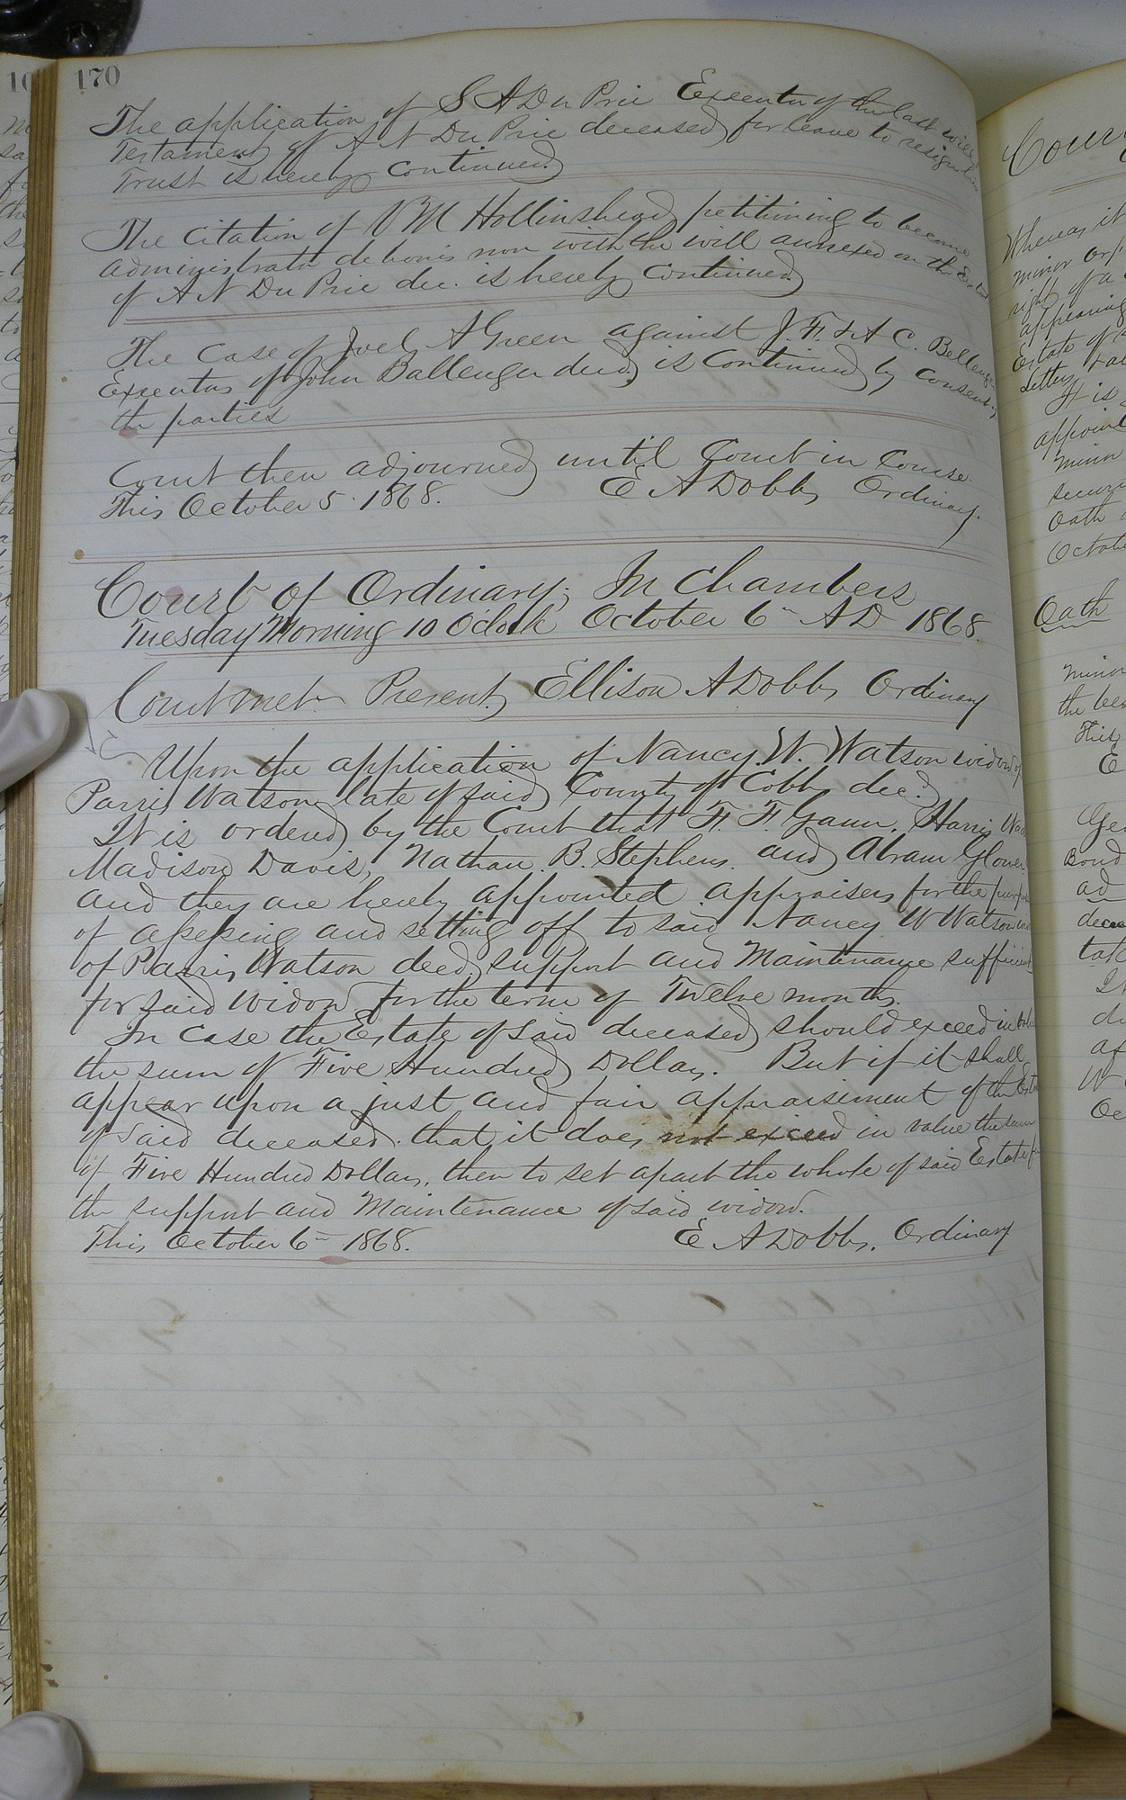 170
The application of S A Du Pric Executor of the last will &
Testament of A N Du Pric deceased for leave to resign his
Trust is hereby continued
The Citation of V M Hollinshead petitioning to become
administrator de bonis non with the will annexed on the Estate
of A N Du Pric dec. is hereby continued
The Case of Joel A Green against J. F. & A C. Ballenger
Executors of John Ballenger decd. is Continued by consent of
the parties
Court then adjourned until Court in Course
This October 5. 1868. E A Dobbs Ordinary.
Court of Ordinary, In Chambers
Tuesday Morning 10 O'clock October 6th AD 1868.
Court met. Present Ellison A Dobbs Ordinary
Upon the application of Nancy W. Watson widow of
Parris Watson late of said County of Cobb dec.d
It is ordered by the Court that F. F. Gann, Harris
Madison Davis, Nathan B. Stephens and Abram Glover
and they are hereby appointed appraisers for the purpose
of assessing and setting off to said Nancy W Watson
of Parris Watson decd. support and Maintenance sufficient
for said widow for the term of Twelve months.
In case the Estate of said deceased should exceed in value
the sum of Five Hundred Dollars. But if it shall
appear upon a just and fair appraisement of the Estate
of said deceased. that it does not exceed in value the sum
of Five Hundred Dollars, then to set apart the whole of said Estate for
the support and Maintenance of said widow.
This October 6th 1868. E A Dobbs. Ordinary
Whereas it
minor orp
right of a
appearing
Estate of
Letters
It is
appoint
minor
Oath
Octob
Oath
minor
the
This
E
Bond
ad
decea